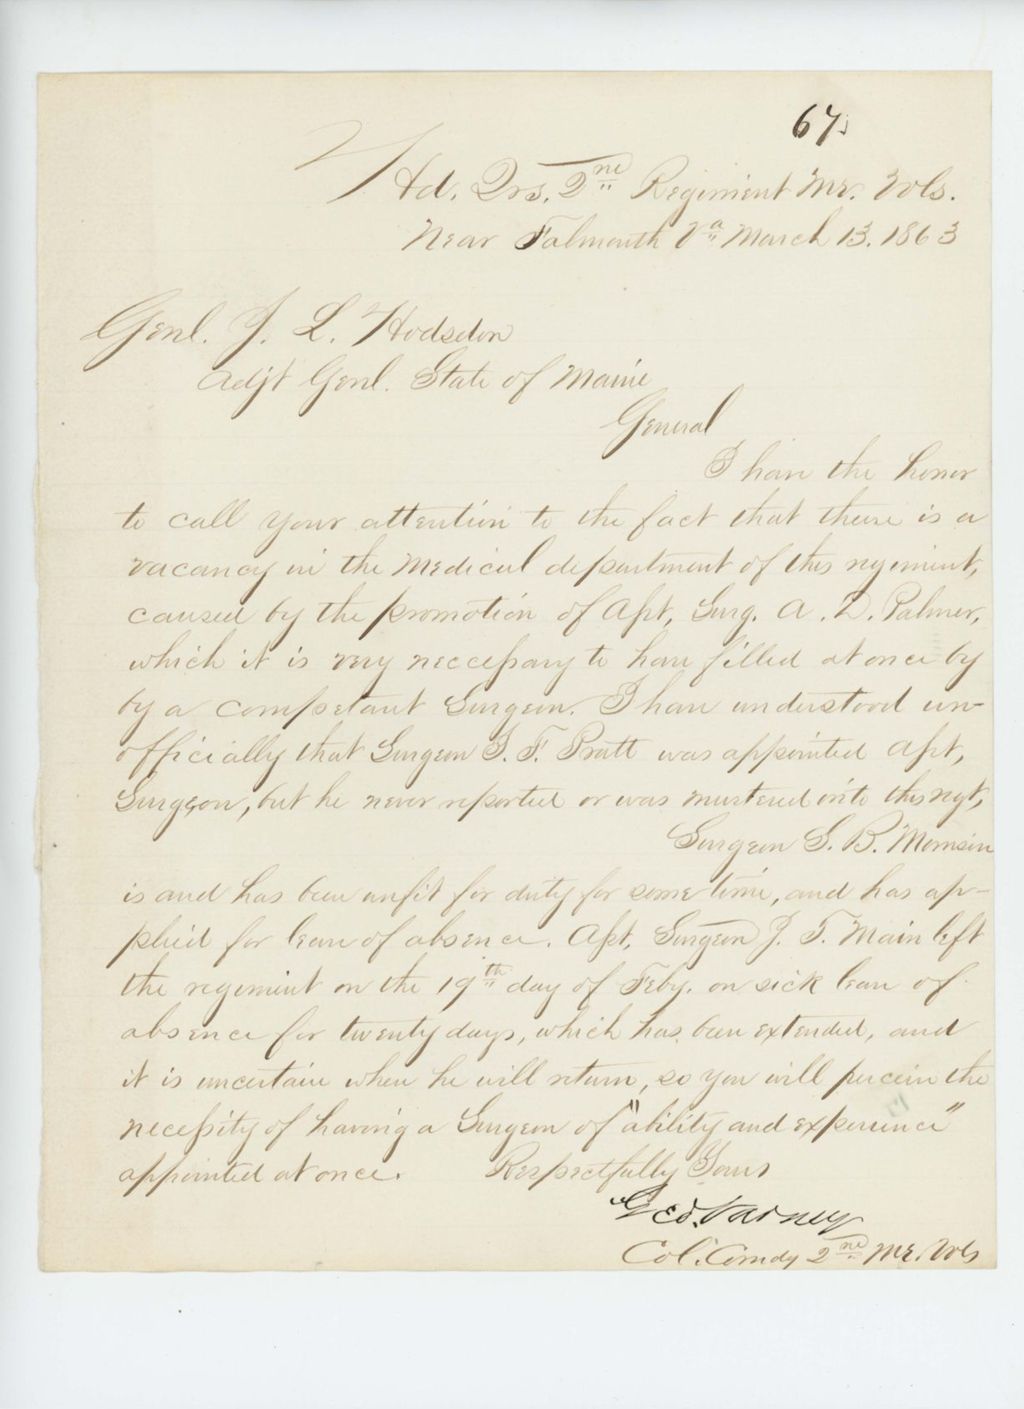 67.
Hd. Qrs. 2nd Regiment Me. Vols.
Near Falmouth Va March 13. 1863
Genl. J. L. Hodsdon
Adjt Genl. State of Maine
General
I have the honor
to call your attention to the fact that there is a
vacancy in the Medical department of this regiment,
caused by the promotion of Asst, Surg. A. D. Palmer,
which it is very neccessary to have filled at once by
by a competant Surgeon. I have understood un-
officially that Surgeon S. F. Pratt was appointed Asst,
Surgeon, but he never reported or was mustered into this regt,
Surgeon S. B. Morrison
is and has been unfit for duty for some time, and has ap-
plied for leave of absence. Asst, Surgeon J. T. Main left
the regiment on the 19th day of Feby. on sick leave of
absence for twenty days, which has been extended, and
it is uncertain when he will return, so you will perceive the
necessity of having a Surgeon of "ability and experience"
appointed at once. Respectfully Yours
Geo. Varney
Col. Comdg 2nd Me. Vols